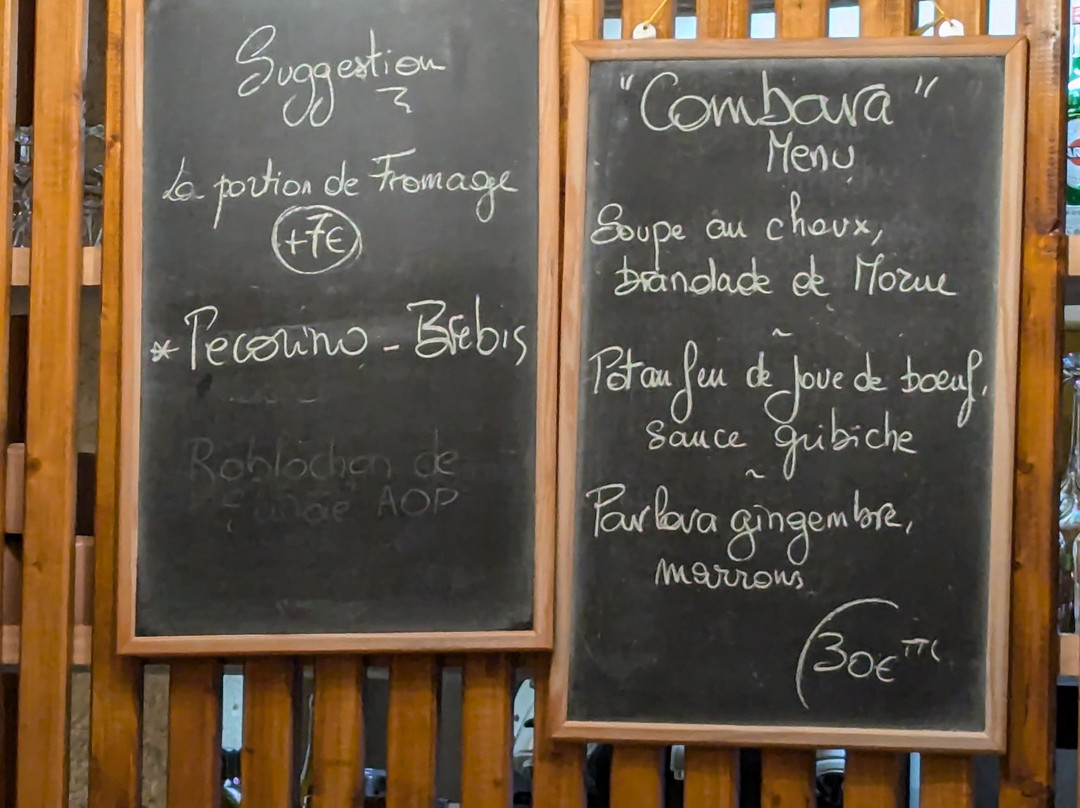 Suggestion
La portion de Fromage
+7€
* Pecorino - Brebis
Roblochon de
AOP
"Combava"
Menu
Soupe au choux,
brandade de Morue
~
Pot au feu de joue de boeuf,
sauce gribiche
~
Pavlova gingembre,
marrons
30€ TTC